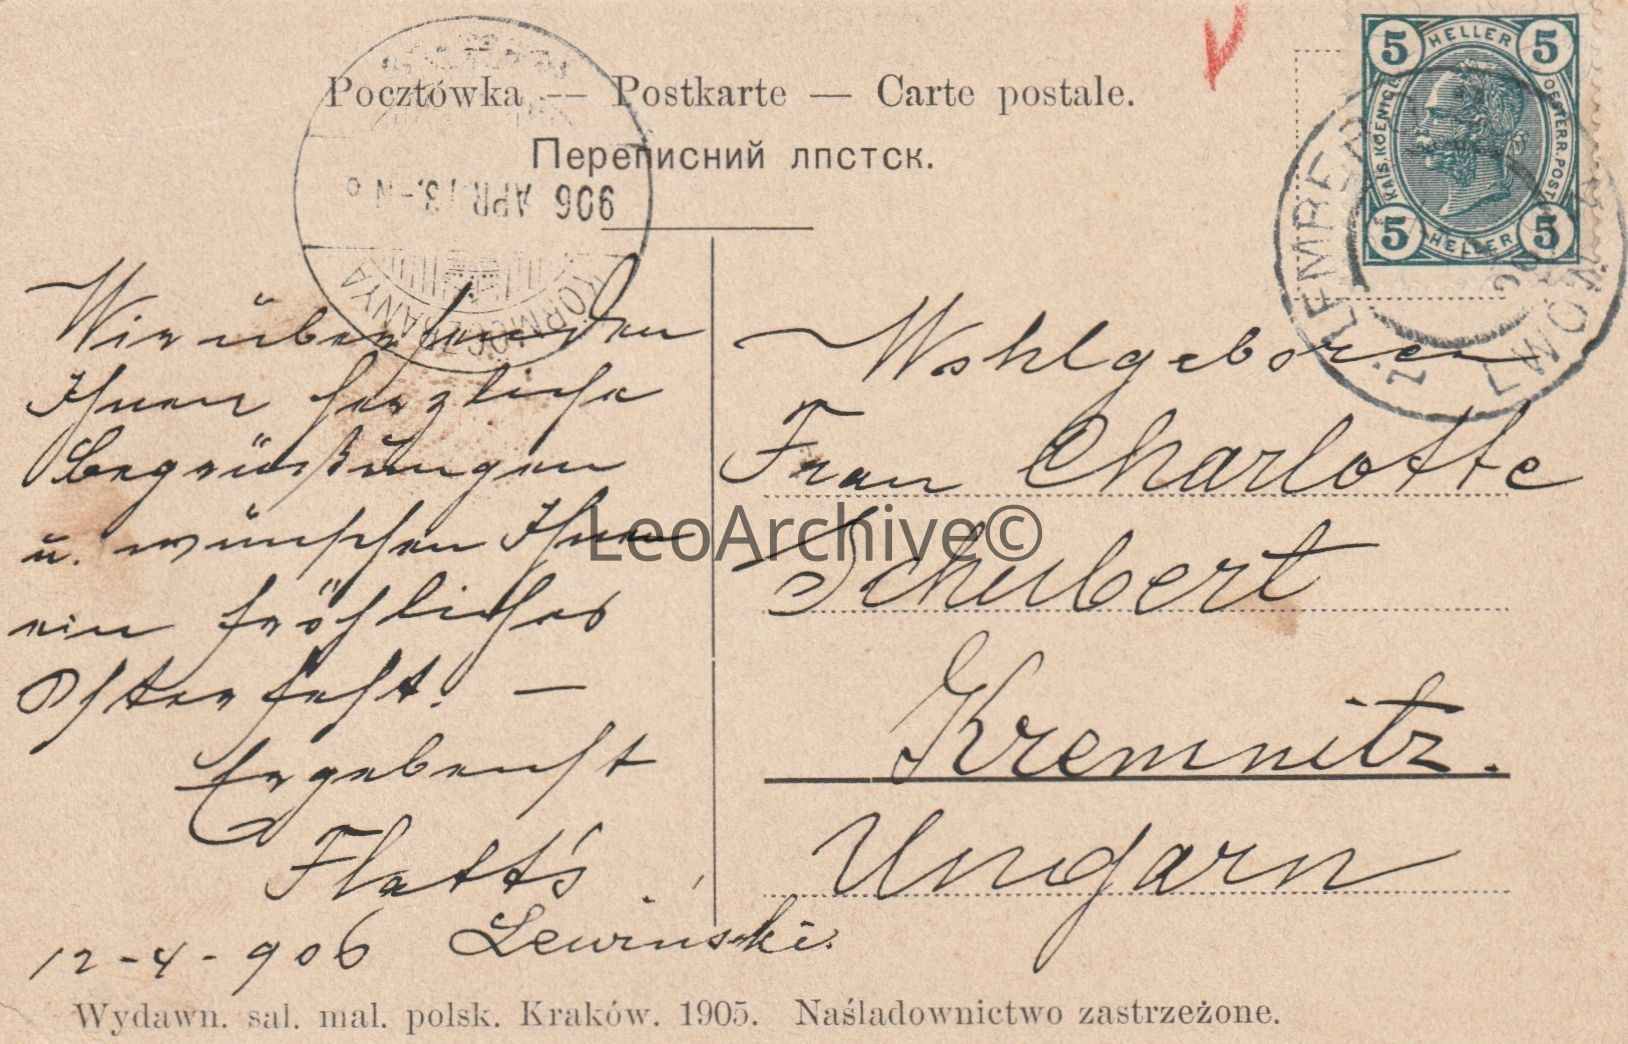 Pocztówka — Postkarte — Carte postale.
Переписний лпстск.
5 HELLER 5
KAIS. KOENIGL. OESTERR. POST
5 HELLER 5
LEMBERG
LWÓW
906 APR. 13.-N 6
KÖRMÖCZBÁNYA
Wir übersenden
Ihnen herzliche
Begrüßungen
u. wünschen Ihnen
ein fröhliches
Osterfest! —
Ergebenst
Flatt's
Lewinski.
12-4-906
Wohlgeboren
Frau Charlotte
Schubert
Kremnitz.
Ungarn
LeoArchive©
Wydawn. sal. mal. polsk. Kraków. 1905. Naśladownictwo zastrzeżone.